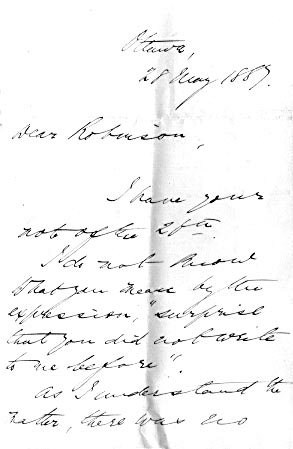 Ottawa,
28 May 1887.
Dear Robinson,
I have your
note of the 26th.
I do not know
what you mean by the
expression, "surprise
that you did not write
to me before".
As I understand the
matter, there was no